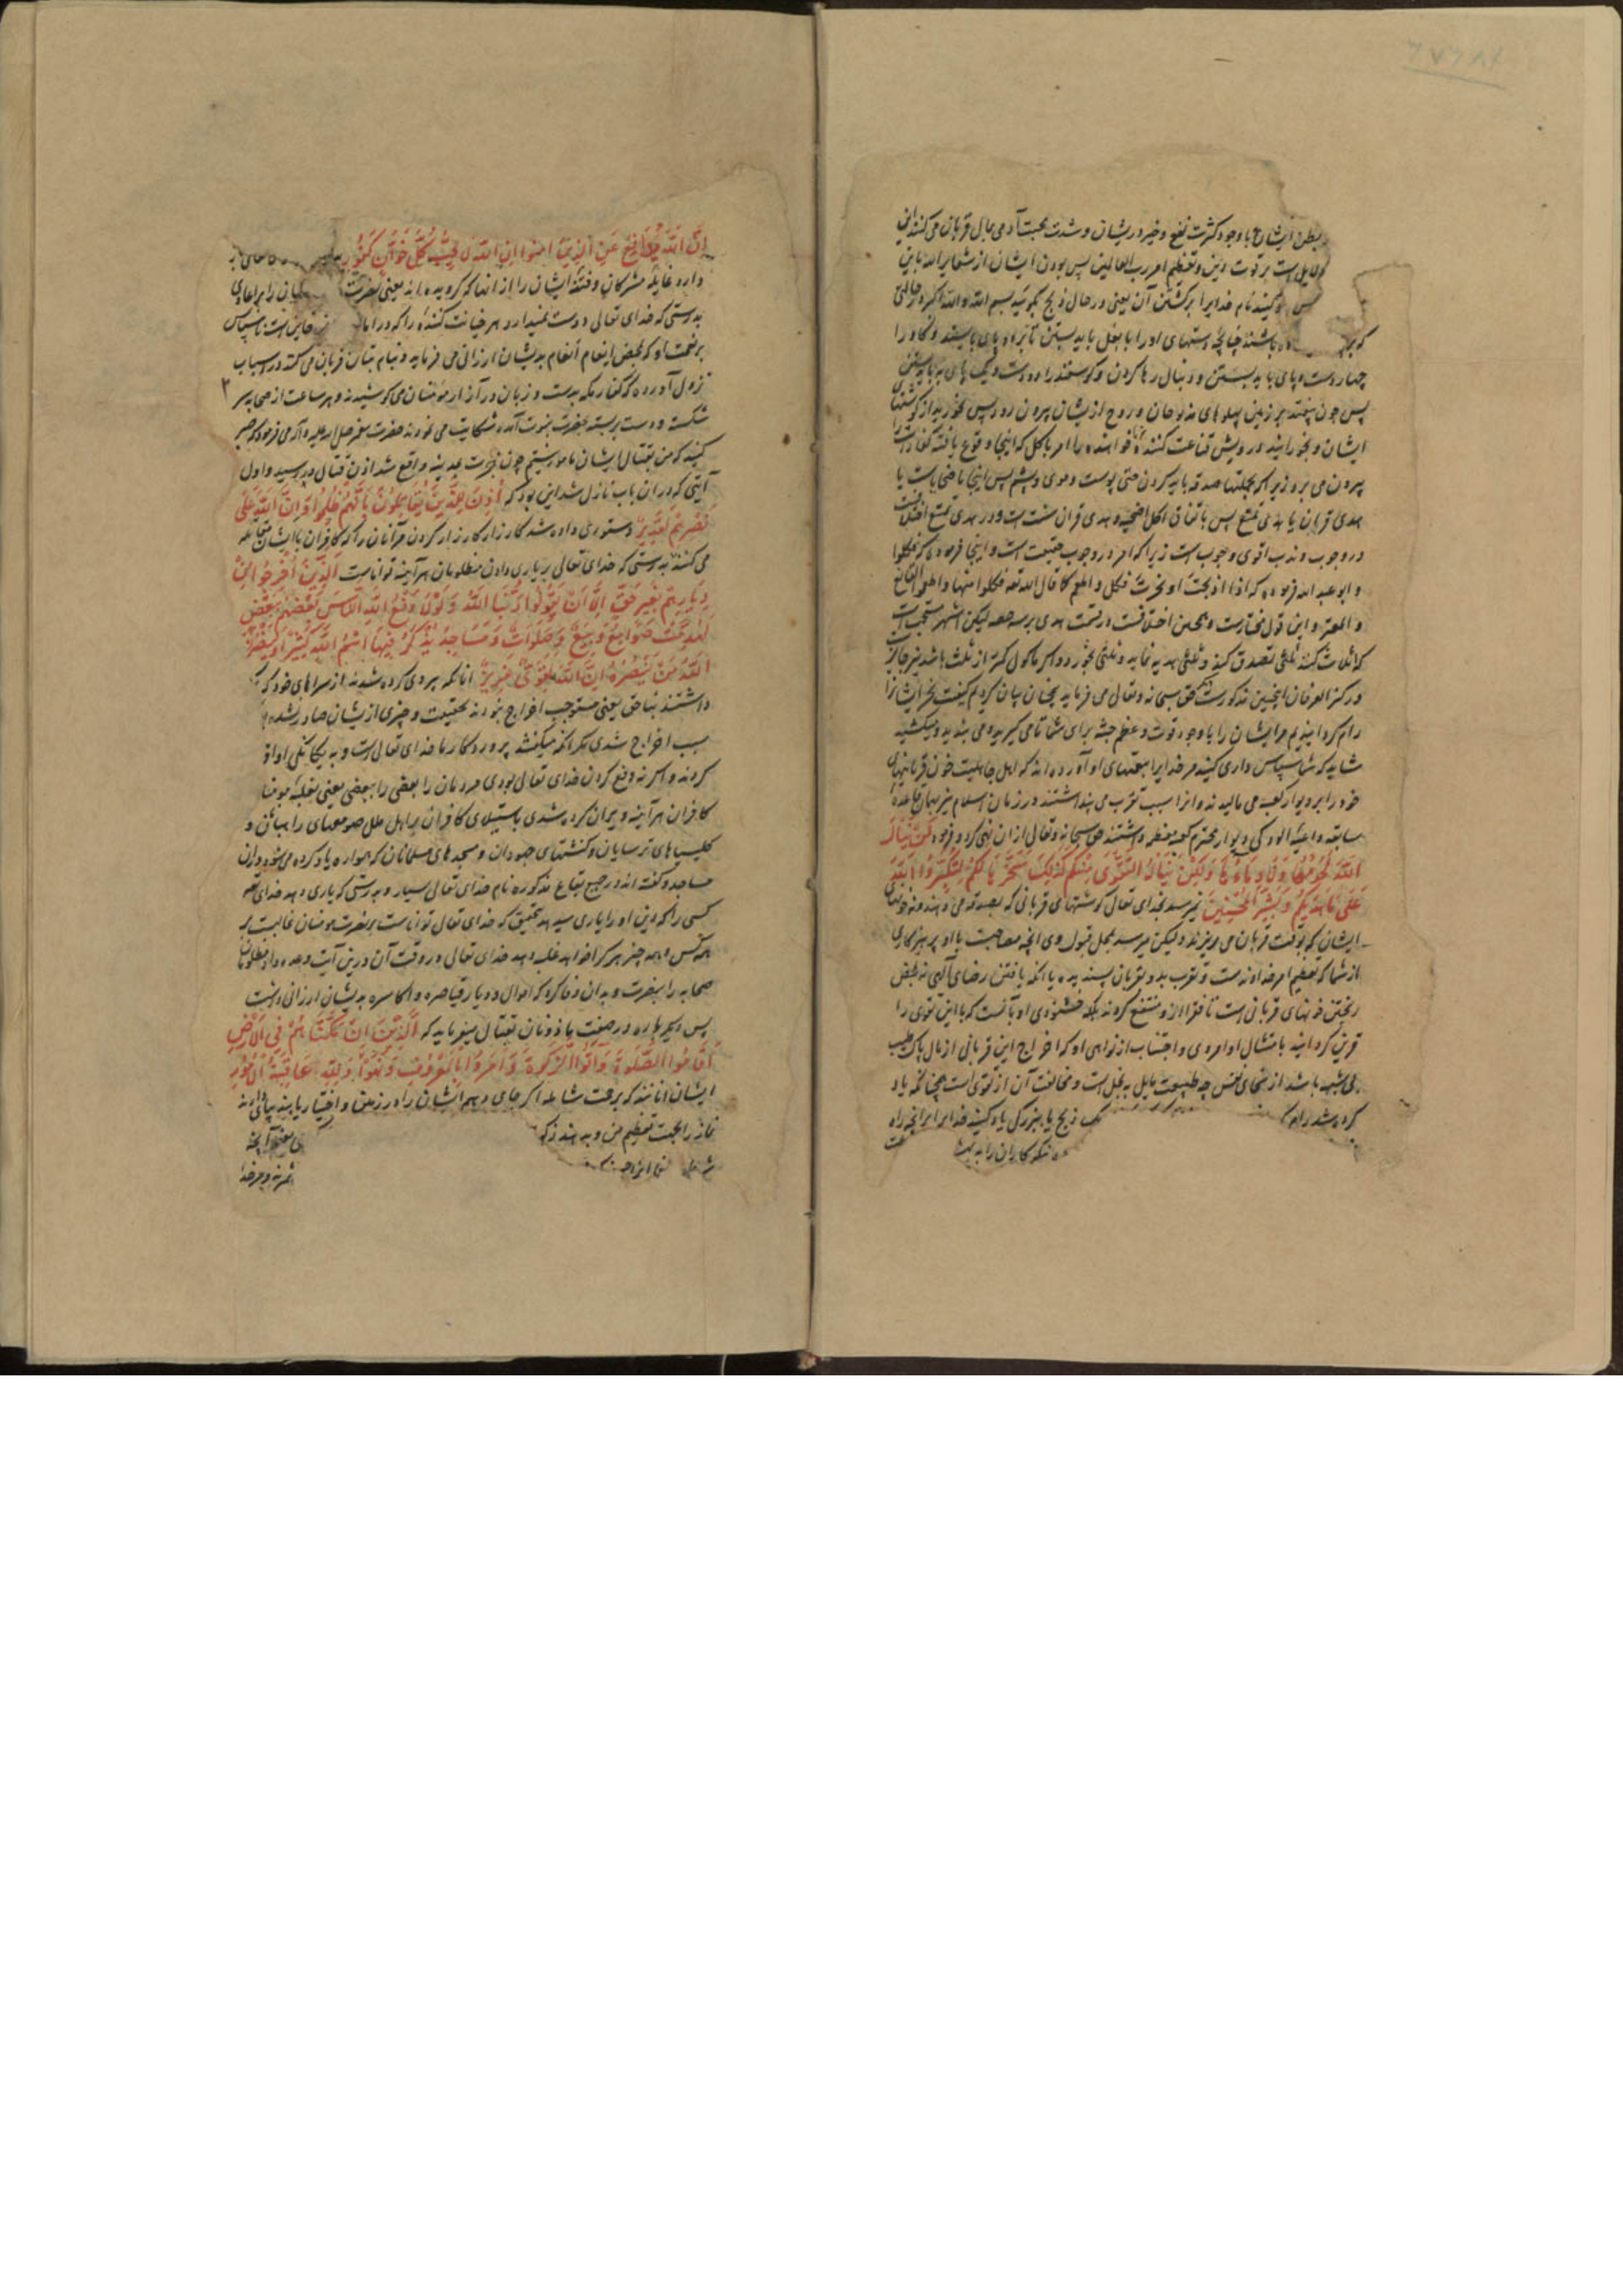 ۶۷۶۸۲
ایشان با وجود کثرت نفع و خیر در ایشان و شدت محبت آدمی بمال قربان می کنند این
دلیل است بر قوت دین و تعظیم امر رب العالمین پس بودن ایشان از شعایر الله باین
پس یاد کنید نام خدایرا بر کشتن آن یعنی در حال ذبح بگویید بسم الله و الله اکبر در حالتی
که بر باشند چنانچه دستهای او را با بغل باید بستن تا بر دو پای بایستند و گاو را
چهار دست و پای باید بستن و دنبال رها کردن و گوسفند را دو دست و یک پای باید بستن
پس چون بیفتد بر زمین پهلوهای مذبوحان و روح از ایشان بیرون رود پس بخورید از گوشتهای
ایشان و بخورانید درویش قناعت کننده و خواهنده را امر باکل که اینجا وقوع یافته
بیرون می برد زیرا که بجملتها صدقه باید کردن حتی پوست و موی و پشم پس اینجا یا ضحایاست یا
هدی قران یا هدی تمتع پس باتفاق اکل اضحیه و هدی قران سنت است و در هدی تمتع اختلافست
در وجوب و ندب اقوی وجوب است زیرا که امر در وجوب حقیقت است و اینجا فرموده که فکلوا
و ابو عبد الله فرموده که اذا ذبحت او نحرت فکل و اطعم کما قال الله تعالی فکلوا منها و اطعموا القانع
و المعتر و این قول مختارست و همچنین اختلافست در قسمت هدی بر سه حصه لیکن اشهر استحبابست
که اثلاث کنند ثلثی تصدق کند و ثلثی هدیه نماید و ثلثی بخورد و اگر ماکول کمتر از ثلث باشد نیز جایز
و در کنز العرفان اینچنین مذکورست حق سبحانه و تعالی می فرماید همچنان بیان کردیم کیفیت نحر ایشانرا
رام گردانیدیم مر ایشان را با وجود قوت و عظم جثه برای شما تا می گیرید و می بندید و میکشید
شاید که شما سپاس داری کنید مر خدایرا بنعمتهای او آورده اند که اهل جاهلیت خون قربانیهای
خود را بر دیوار کعبه می مالیدند و آنرا سبب تقرب می پنداشتند در زمان اسلام نیز بهمان قاعدهٔ
سابقه داعیهٔ آلودگی دیوار محترم کعبه معظمه داشتند حق سبحانه و تعالی از آن نهی کرد و فرمود که لَنْ یَنَالَ
اللَّهَ لُحُومُهَا وَلَا دِمَاؤُهَا وَلَکِنْ یَنَالُهُ التَّقْوَی مِنْکُمْ کَذَلِکَ سَخَّرَهَا لَکُمْ لِتُکَبِّرُوا اللَّهَ
عَلَی مَا هَدَیکُمْ وَبَشِّرِ الْمُحْسِنِینَ نمیرسد بخدای تعالی گوشتهای قربانی که بصدقه می دهند و نه خونهای
ایشان که بوقت قربان می ریزند و لیکن میرسد بمحل قبول وی آنچه مصاحبت با او پرهیزکاری
از شما که تعظیم امر خداوندست و تقرب بدو بقربان پسندیده یا آنکه یافتن رضای الهی نه بمحض
ریختن خونهای قربانی است تا فقرا از او منتفع گردند بلکه خشنودی او بآنست که با این تقوی را
قرین گردانید بامتثال اوامر وی و اجتناب از نواهی او که اخراج این قربانی از مال پاک طیب
بی شبهه باشد از سخای نفس چه طبیعت مایل به بخل است و مخالفت آن از تقوی است همچنانکه یاد
کرده شد رام ذبح یا ببزرگی یاد کنید خدایرا بر آنچه راه
نیکوکاران را به بهشت
إِنَّ اللَّهَ یُدَافِعُ عَنِ الَّذِینَ آمَنُوا إِنَّ اللَّهَ لَا یُحِبُّ کُلَّ خَوَّانٍ کَفُورٍ
دارد غایلهٔ مشرکان و فتنهٔ ایشان را از آنها که گرویده اند یعنی نصرت را بر اعادی
بدرستی که خدای تعالی دوست نمیدارد هر خیانت کننده را که در خاین است ناسپاس
بر نعمت او که بمحض انعام انعام بدیشان ارزانی می فرماید و بنام بتان قربان می کند در اسباب
نزول آورده که کفار مکه بدست و زبان در آزار مؤمنان می کوشیدند و هر ساعت از صحابه سر
شکسته و دست بر بسته بحضرت نبوت آمده شکایت می نمودند حضرت پیغمبر صلی الله علیه و آله می فرمود که صبر
کنید که من بقتال ایشان مامور نیستم چون هجرت بمدینه واقع شد اذن قتال در رسید و اول
آیتی که در ان باب نازل شد این بود که أُذِنَ لِلَّذِینَ یُقَاتَلُونَ بِأَنَّهُمْ ظُلِمُوا وَإِنَّ اللَّهَ عَلَی
نَصْرِهِمْ لَقَدِیرٌ دستوری داده شد کارزار کردن مر آنان را که کافران با ایشان مقاتله
می کنند بدرستی که خدای تعالی بر یاری دادن مظلومان هر آینه تواناست الَّذِینَ أُخْرِجُوا مِنْ
دِیَارِهِمْ بِغَیْرِ حَقٍّ إِلَّا أَنْ یَقُولُوا رَبُّنَا اللَّهُ وَلَوْلَا دَفْعُ اللَّهِ النَّاسَ بَعْضَهُمْ بِبَعْضٍ
لَهُدِّمَتْ صَوَامِعُ وَبِیَعٌ وَصَلَوَاتٌ وَمَسَاجِدُ یُذْکَرُ فِیهَا اسْمُ اللَّهِ کَثِیرًا وَلَیَنْصُرَنَّ
اللَّهُ مَنْ یَنْصُرُهُ إِنَّ اللَّهَ لَقَوِیٌّ عَزِیزٌ آنانکه بیرون کرده شدند از سراهای خود که
داشتند بناحق یعنی مستوجب اخراج نبودند بحقیقت و چیزی از یشان صادر نشده
سبب اخراج شدی مگر آنکه میگفتند پروردگار ما خدای تعالی است و به یگانگی او اقرار
کردند و اگر نه دفع کردن خدای تعالی بودی مردمان را بعضی را ببعضی یعنی بغلبهٔ مومنان
کافران هر آینه ویران کرده شدی باستیلای کافران بر اهل ملل صومعهای راهبان و
کلیسیاهای ترسایان و کنشتهای جهودان و مسجدهای مسلمانان که همواره یاد کرده می شود در آن
مساجد و گفته اند در جمیع بقاع مذکوره نام خدای تعالی بسیار و بدرستی که یاری دهد خدای تعالی
کسی را که دین او را یاری میدهد بتحقیق که خدای تعالی تواناست بر نصرت مومنان غالبست بر
همه کس و همه چیز هر کرا خواهد غلبه دهد خدای تعالی در وقت آن درین آیت وعده داد مظلومان
صحابه را بنصرت و بدان وفا کرد که اموال و دیار قیاصره و اکاسره بدیشان ارزانی داشت
پس دیگر باره در صفت ماذونان بقتال میفرماید که الَّذِینَ إِنْ مَکَّنَّاهُمْ فِی الْأَرْضِ
أَقَامُوا الصَّلَوةَ وَآتَوُا الزَّکَوةَ وَأَمَرُوا بِالْمَعْرُوفِ وَنَهَوْا وَلِلَّهِ عَاقِبَةُ الْأُمُورِ
ایشان آنانند که برحمت شامله اگر جای دهیم ایشان را در زمین و اختیار یابند بپای دارند
نماز را بجهت تعظیم من و بدهند زکوة